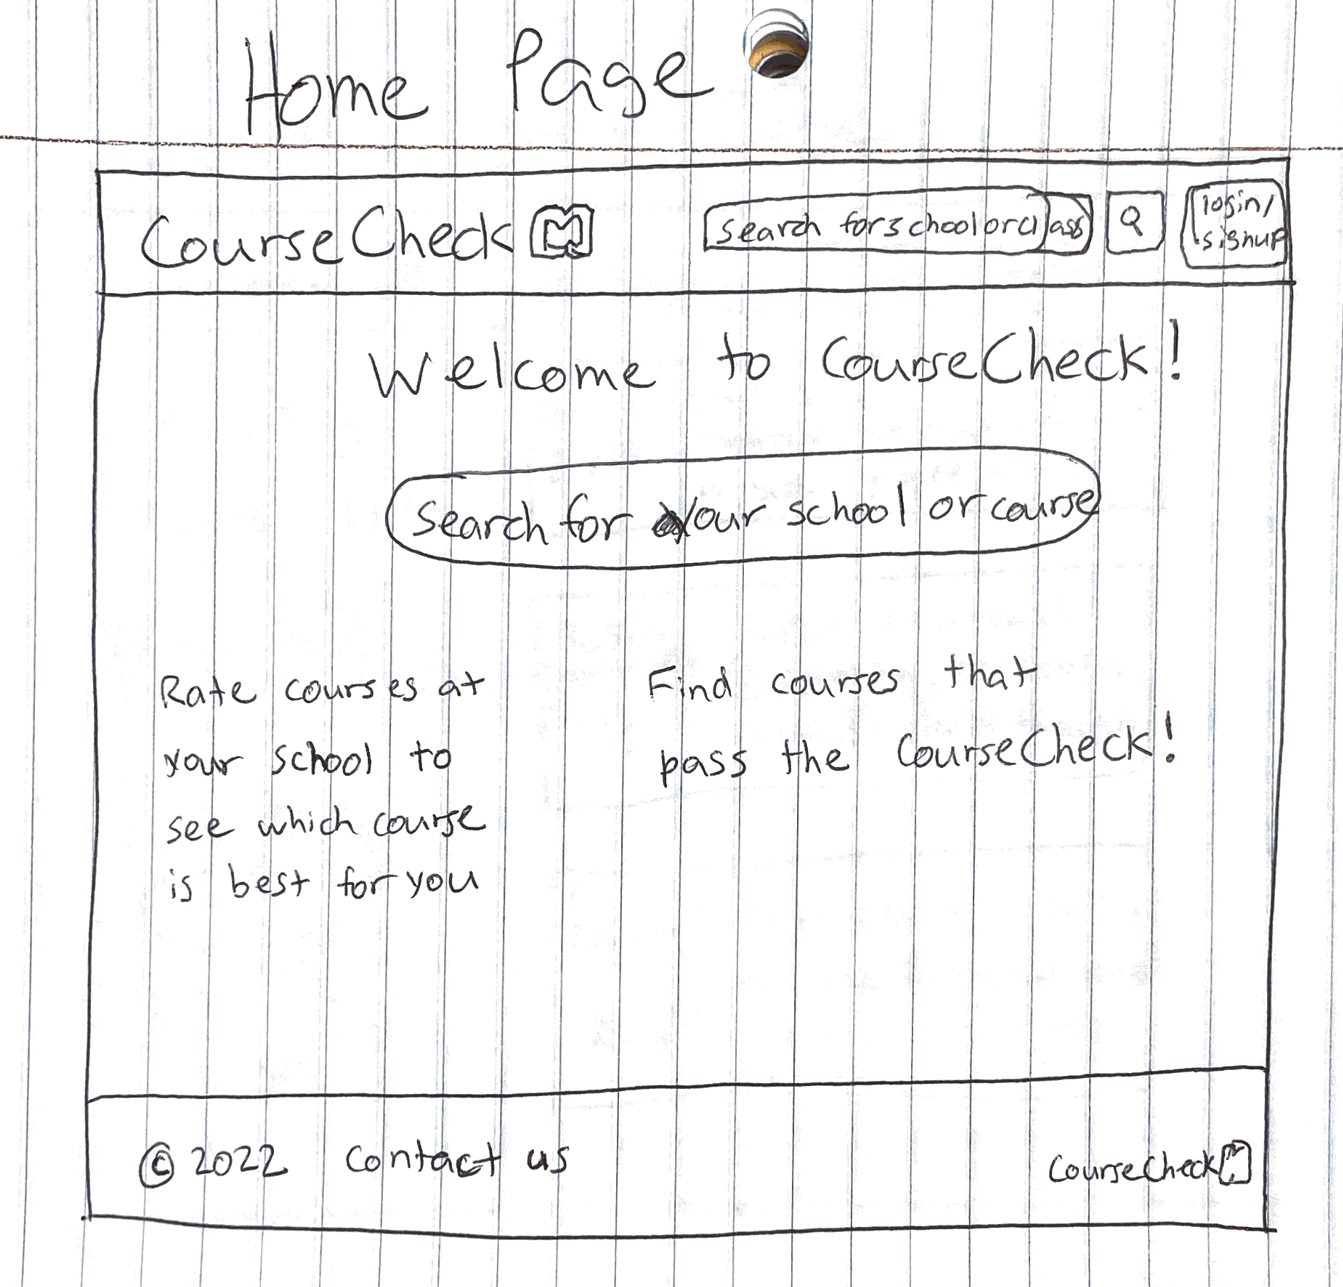 Home Page
CourseCheck
search for school or class
login/
signup
Welcome to CourseCheck!
Search for your school or course
Rate courses at
your school to
see which course
is best for you
Find courses that
pass the CourseCheck!
© 2022 Contact us
CourseCheck